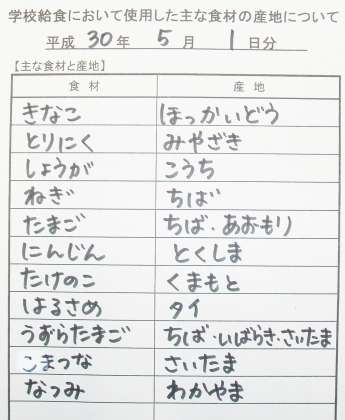 学校給食において使用した主な食材の産地について
平成 30 年 5 月 1 日分
【主な食材と産地】
食材 産地
きなこ ほっかいどう
とりにく みやざき
しょうが こうち
ねぎ ちば
たまご ちば・あおもり
にんじん とくしま
たけのこ くまもと
はるさめ タイ
うずらたまご ちば・いばらき・さいたま
こまつな さいたま
なつみ わかやま